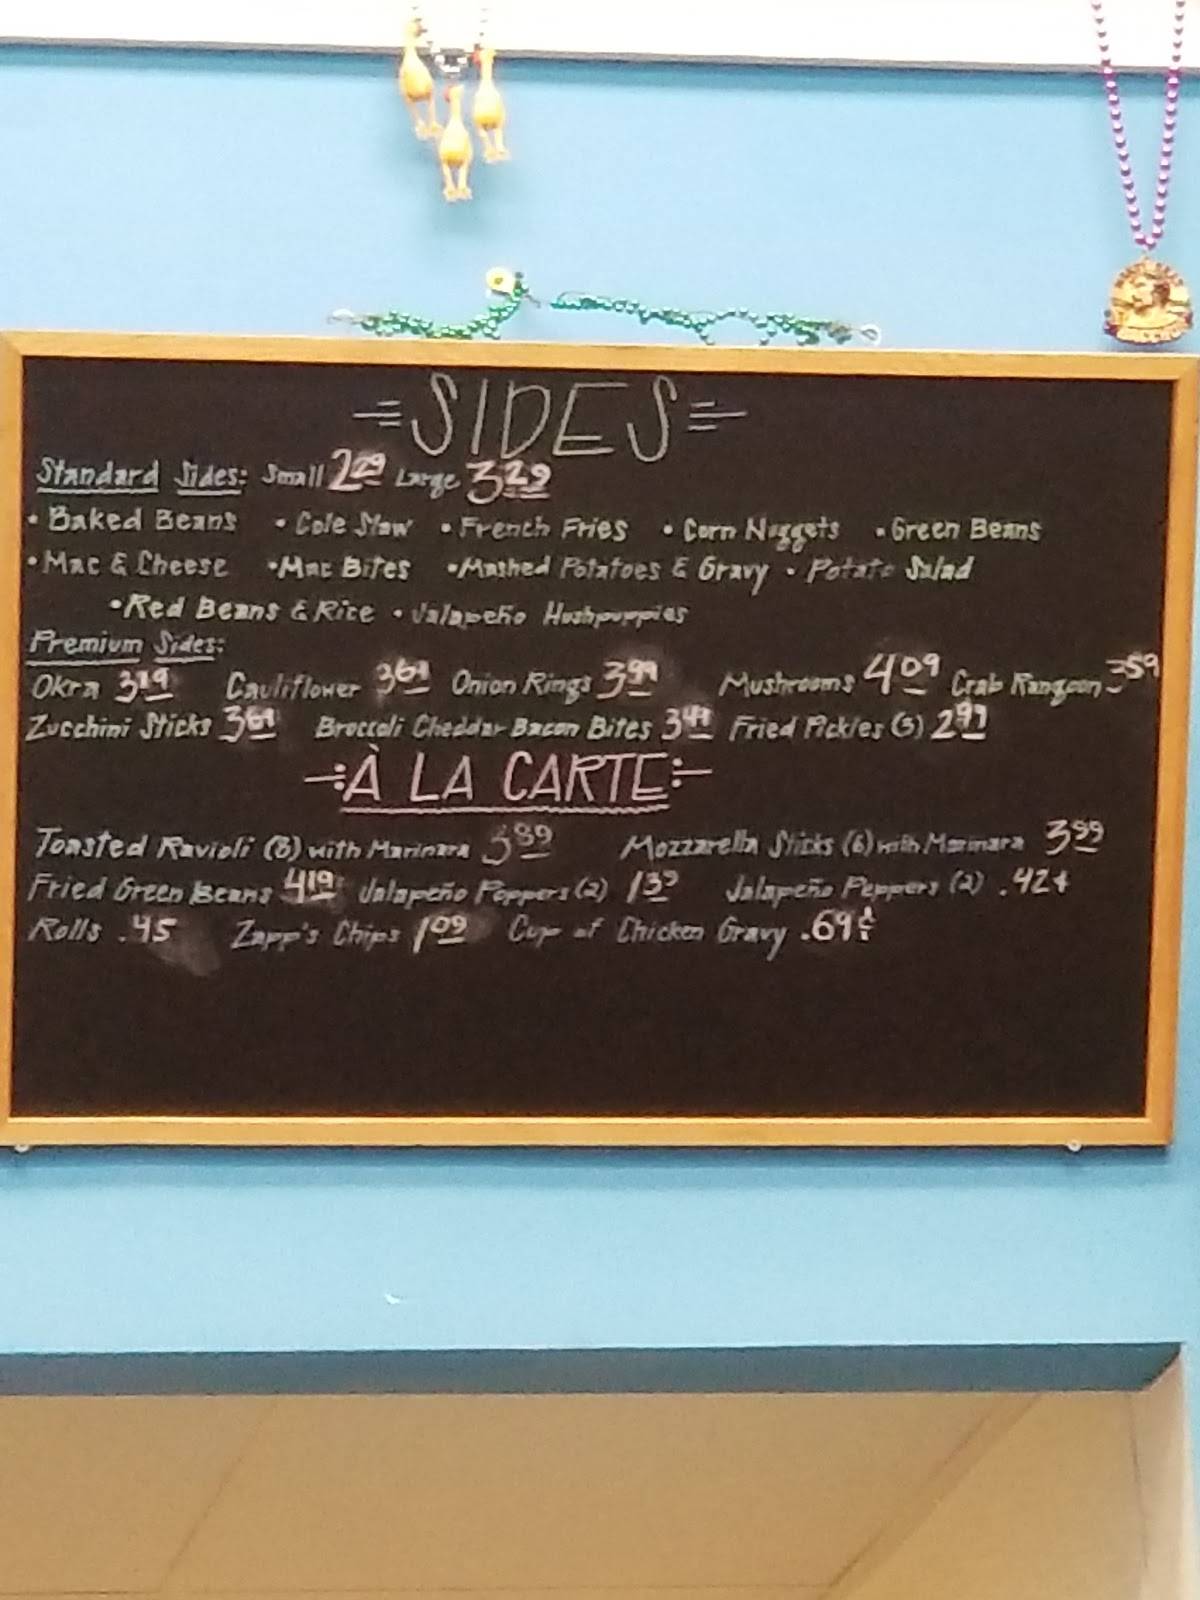 SIDES
Standard Sides: Small 2.29 Large 3.29
• Baked Beans • Cole Slaw • French Fries • Corn Nuggets • Green Beans
• Mac & Cheese • Mac Bites • Mashed Potatoes & Gravy • Potato Salad
• Red Beans & Rice • Jalapeño Hushpuppies
Premium Sides:
Okra Cauliflower 3.69 Onion Rings 3.99 Mushrooms 4.09 Crab Rangoon 3.59
Zucchini Sticks 3.69 Broccoli Cheddar Bacon Bites 3.49 Fried Pickles (5) 2.99
À LA CARTE
Toasted Ravioli (8) with Marinara 3.89 Mozzarella Sticks (6) with Marinara 3.99
Fried Green Beans 4.19 Jalapeño Poppers (2) 1.39 Jalapeño Peppers (2) .42¢
Rolls .45 Zapp's Chips 1.09 Cup of Chicken Gravy .69¢